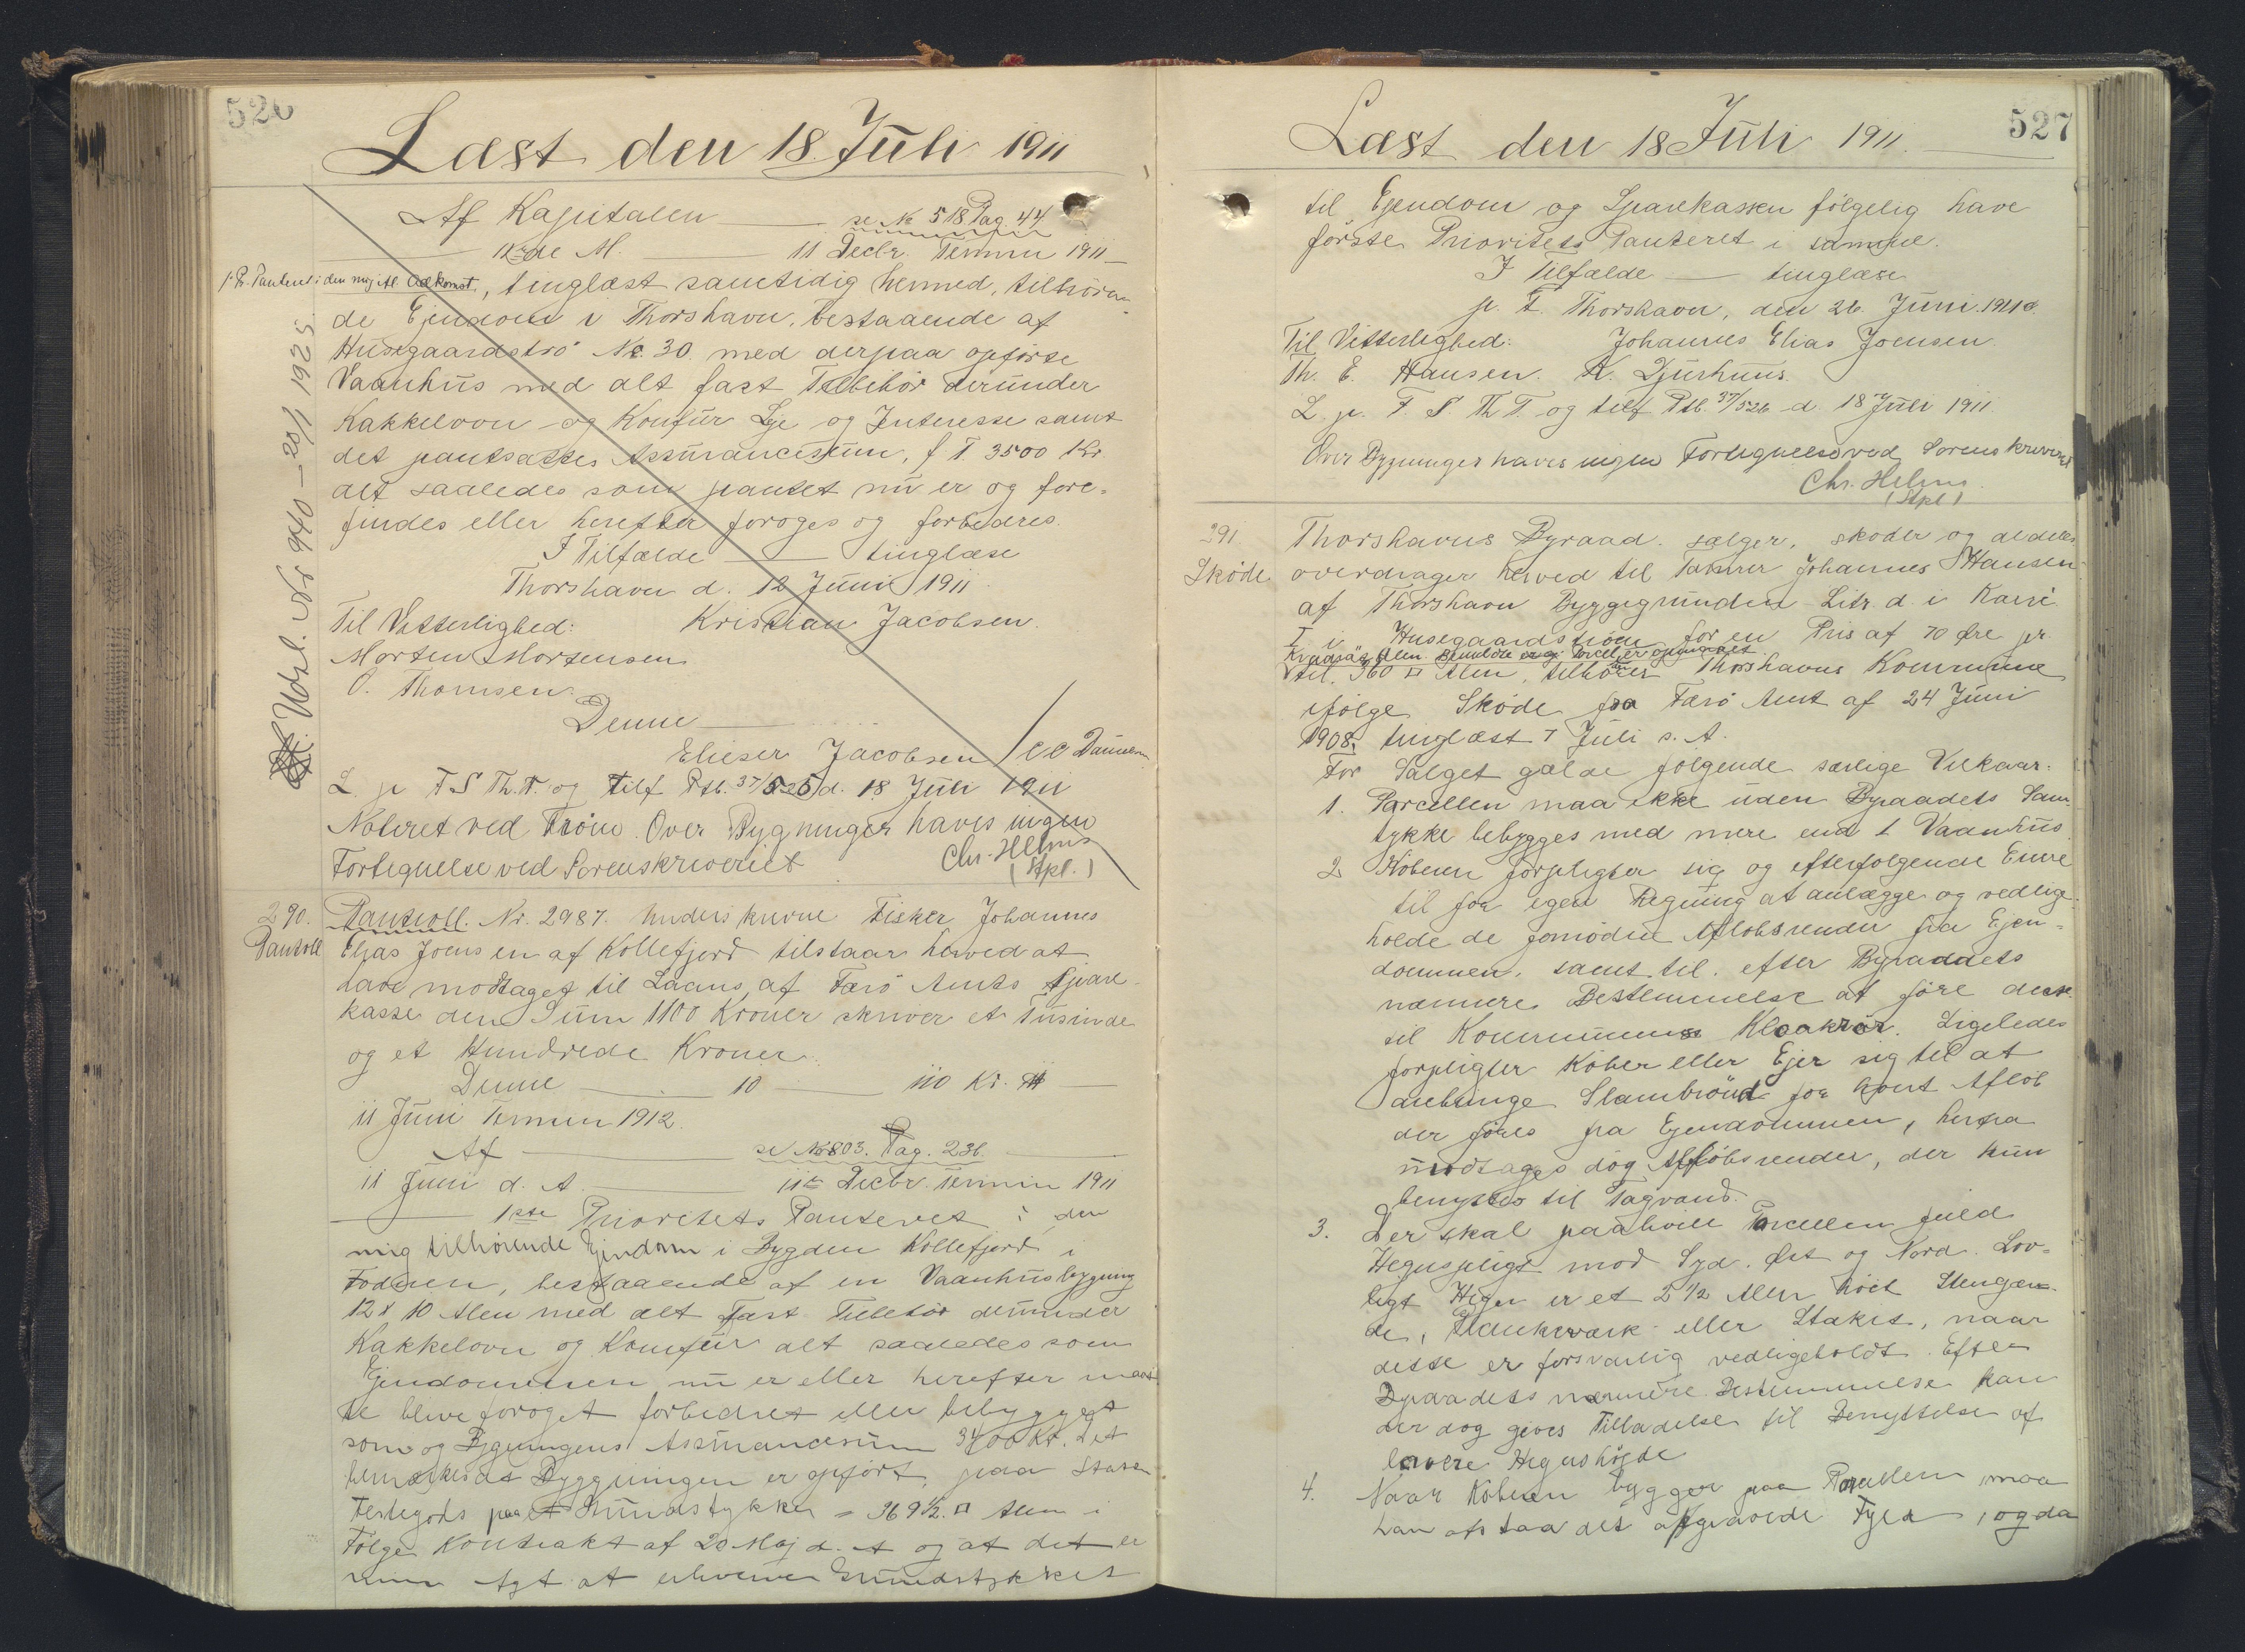 526
Læst den 18. Juli 1911
Af Kapitalen se No 518 Pag 44
11 Decbr. Termin 1911
1. Pr. Panteret i den mig Adkomst, tinglæst samtidig hermed, tilhören
de Ejendom i Thorshavn, bestaaende af
Husegaardströ No. 30. med derpaa opförte
Vaanhus med alt fast Tilbehör derunder
Kakkelovn og Komfur Leje og Interesse samt
det pantsattes Assurancesum, f. T. 3500 Kr
alt saaledes som pantet nu er og fore-
findes eller herefter foroges og forbedres.
I Tilfælde tinglæse
Thorshavn d. 12 Juni 1911
Til Vitterlighed: Kristian Jacobsen.
Morten Mortensen
O. Thomsen.
Denne
Elieser Jacobsen / CC Danielsen
L. p F S Th. T. og tilf Ptb. 37/525 d. 18 Juli 1911
Noteret ved Tröin. Over Bygninger haves ingen
Fortegnelse ved Sorenskriveriet Chr. Helms
(Stpl.)
Udsl. No 940 - 20/1 1925.
290. Pantobl. Nr. 2987. Underskrevne Fisker Johannes
Pantobl Elias Joensen af Kollefjord tilstaar herved at
have modtaget til Laans af Færö Amts Spare-
kasse den Sum 1100 Kroner skriver et Tusinde
og et Hundrede Kroner.
Denne 10 110 Kr.
11 Juni Termin 1912.
Af se No 803. Pag. 236.
11 Juni d. A. 11te Decbr. Termin 1911
1ste Prioritets Panteret i den
mig tilhörende Ejendom i Bygden Kollefjord i
bestaaende af en Vaanhusbygning
12 x 10 Alen med alt Fast Tilbehör derunder
Kakkelovn og Komfur alt saaledes som
Ejendommen nu er eller herefter maat
te blive foroget forbedret eller bebygget
som og Bygningens Assurancesum 3400 Kr. Det
bemærkes at Byggningen er opfört paa Statens
Festegods paa et Grundstykke = 369 1/2 □ Alen i
Fölge Kontrakt af 20 Maj d. A og at det er
min Agt at erhverve Grundstykket
527
Læst den 18 Juli 1911.
til Ejendom og Sparekassen fölgelig have
förste Prioritets Panteret i samme.
I Tilfælde tinglæse
p. t. Thorshavn, den 26. Juni. 1911.
Til Vitterlighed: Johannes Elias Joensen.
Th. E. Hansen. K. Djurhuus.
L. p. F. S Th T. og tilf Ptb. 37/526 d. 18 Juli 1911.
Over Bygninger haves ingen Fortegnelse ved Sorenskriveriet
Chr. Helms.
(Stpl)
291. Thorshavns Byraad. sælger, skoder og aldeles
Sköde overdrager herved til Johannes Hansen
af Thorshavn Byggegrunden Litr. d. i Karré
I i Husegaardströen for en Pris af 70 Øre pr.
Kvadrat Alen Parcel er opmaalt
til. 360 □ Alen, tilhörer Thorshavns Kommune
ifölge Sköde fra Færö Amt af 24 Juni
1908. tinglæst 7 Juli s. A.
For Salget gælde fölgende særlige Vilkaar:
1. Parcellen maa ikke uden Byraadets Sam-
tykke bebygges med mere end 1 Vaanhus.
2. Köberen forpligter sig og efterfolgende Eiere
til for egen Regning at anlægge og vedlige-
holde de fornödne Aflöbsrender fra Ejen-
dommen. samt til. efter Byraadets
nærmere Bestemmelse at före disse
til Kommunens Kloakrör. Ligeledes
forpligter Köber eller Ejer sig til at
anbringe Slambrönd for hvert Aflöb
der föres fra Ejendommen, herfra
undtages dog Aflöbsrender, der kun
benyttes til Tagvand.
3. Der skal paahvile Parcellen fuld
Hegnspligt mod Syd. Öst og Nord. Lov-
ligt Hegn er et 2 1/2 Alen höit Stengær-
de, Plankeværk eller Stakit, naar
dette er forsvarlig vedligeholdt. Efter
Byraadets nærmere Bestemmelse kan
der dog gives Tilladelse til Benyttelse af
lavere Hegnshöjde
4. Naar Köberen bygger paa Parcellen, maa
han afstaa det afgravede Fyld, og da